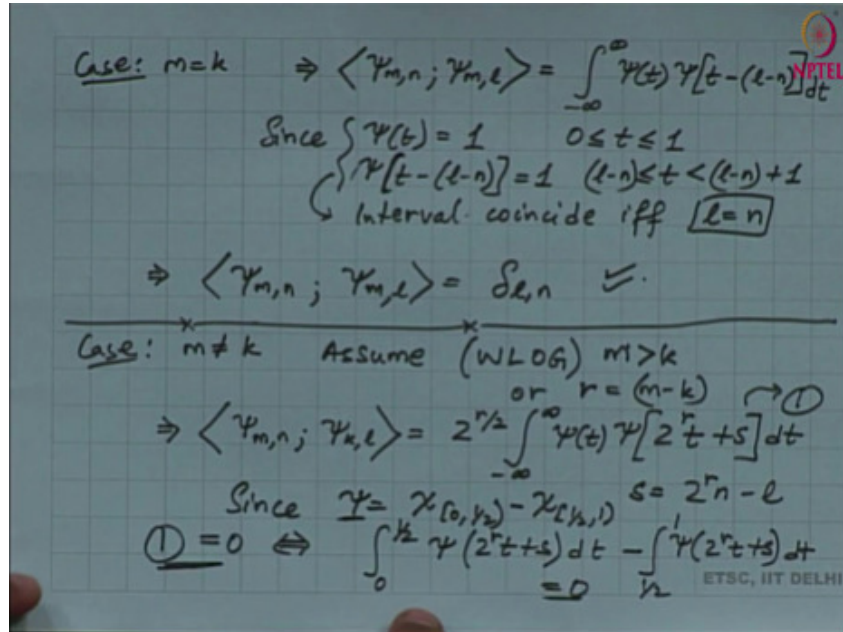 Case: m=k ⇒ ⟨Ψm,n ; Ψm,l⟩ = ∫_{-∞}^{∞} Ψ(t) Ψ[t-(l-n)] dt
NPTEL
Since { Ψ(t) = 1 0 ≤ t ≤ 1
Ψ[t-(l-n)] = 1 (l-n) ≤ t < (l-n)+1
Interval coincide iff l=n
⇒ ⟨Ψm,n ; Ψm,l⟩ = δl,n
Case: m≠k Assume (WLOG) m>k
or r = (m-k)
⇒ ⟨Ψm,n ; Ψk,l⟩ = 2^{r/2} ∫_{-∞}^{∞} Ψ(t) Ψ[2^r t + s] dt → ①
Since Ψ = χ[0,1/2) - χ[1/2,1) s = 2^r n - l
① = 0 ⇔ ∫_0^{1/2} Ψ(2^r t+s) dt - ∫_{1/2}^1 Ψ(2^r t+s) dt
=0
ETSC, IIT DELHI